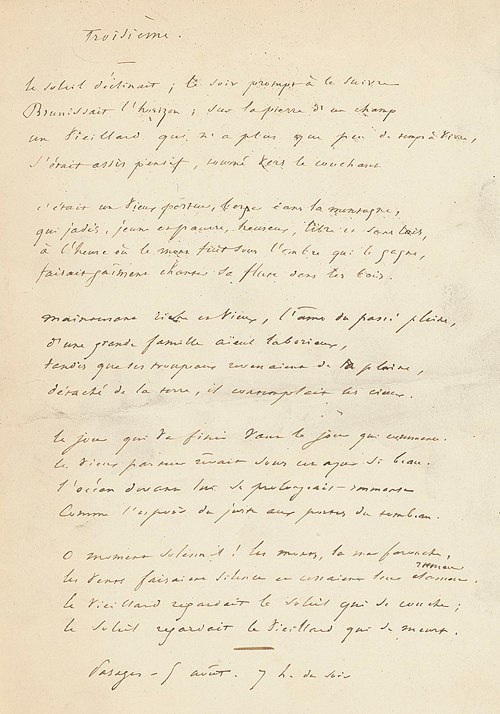 Troisième.
le soleil déclinait ; le soir prompt à le suivre
Brunissait l'horizon ; sur la pierre d'un champ
un vieillard, qui n'a plus que peu de temps à vivre,
s'était assis pensif, tourné vers le couchant.
c'était un vieux pasteur, berger dans la montagne,
qui jadis, jeune et pauvre, heureux, libre et sans lois,
à l'heure où le mont fuit sous l'ombre qui le gagne,
faisait gaîment chanter sa flûte dans les bois.
maintenant riche et vieux, l'âme du passé pleine,
d'une grande famille aïeul laborieux,
tandis que ses troupeaux revenaient de la plaine,
détaché de la terre, il contemplait les cieux.
le jour qui va finir vaut le jour qui commence.
le vieux pasteur rêvait sous un azur si beau.
l'océan devant lui se prolongeait immense
Comme l'espoir du juste aux portes du tombeau.
O moment solennel ! les monts, la mer farouche,
les vents faisaient silence et cessaient leur clameur.
le vieillard regardait le soleil qui se couche ;
le soleil regardait le vieillard qui se meurt.
Pasages – 5 août. 7 h. du soir